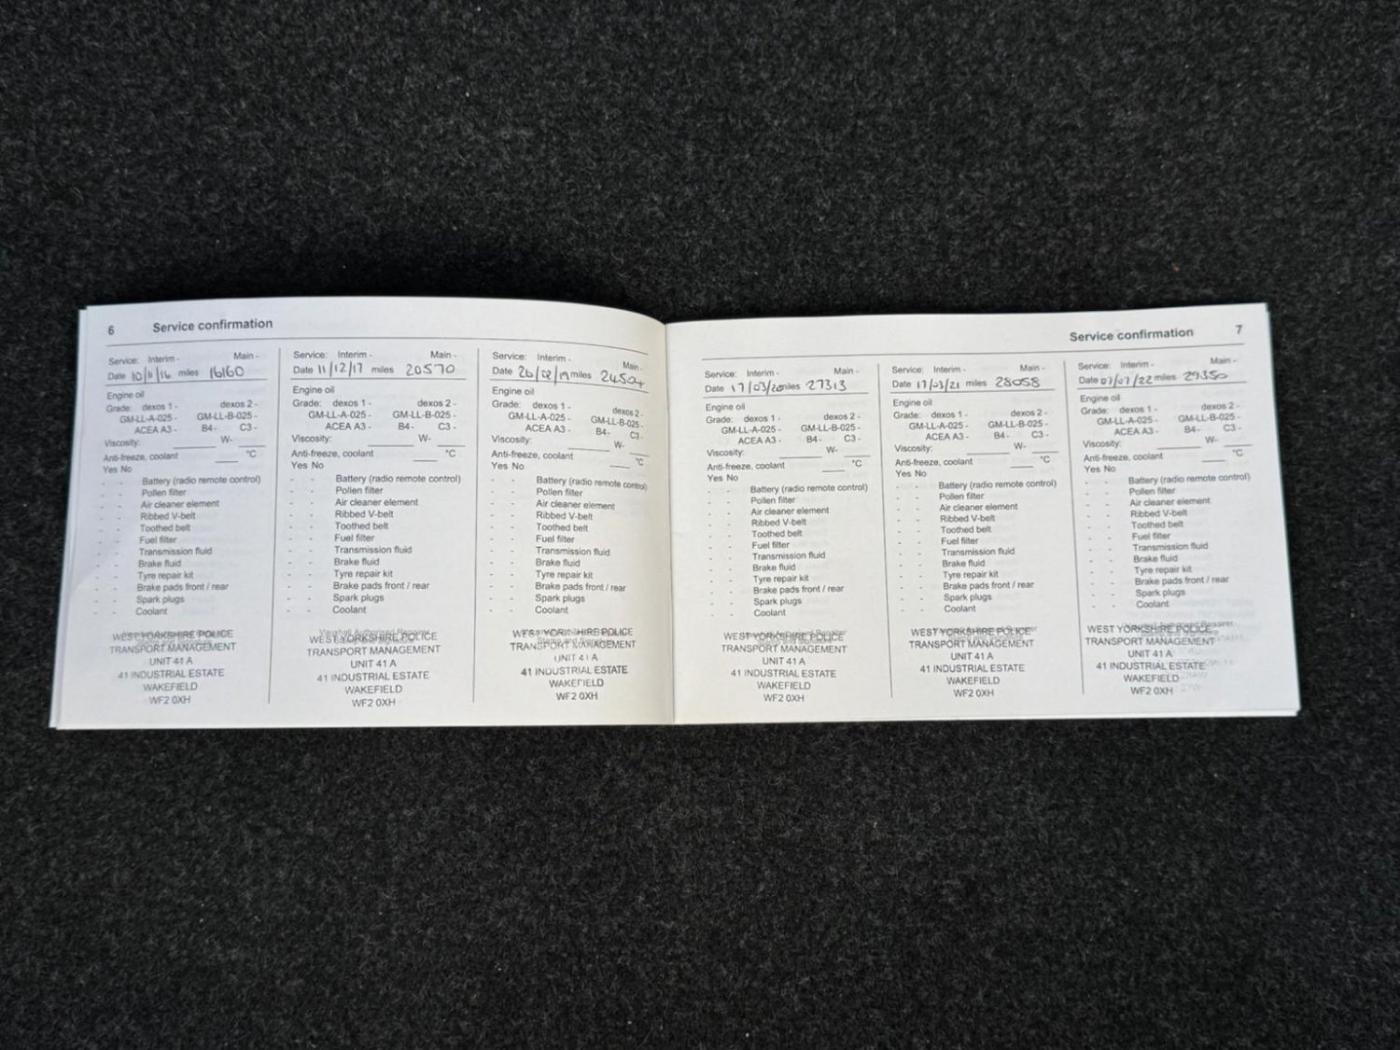 6 Service confirmation
Service: Interim - Main -
Date 10/11/16 miles 16160
Engine oil
Grade: dexos 1 - dexos 2 -
GM-LL-A-025 - GM-LL-B-025 -
ACEA A3 - B4 - C3 -
Viscosity: W-
Anti-freeze, coolant °C
Yes No
- - Battery (radio remote control)
- - Pollen filter
- - Air cleaner element
- - Ribbed V-belt
- - Toothed belt
- - Fuel filter
- - Transmission fluid
- - Brake fluid
- - Tyre repair kit
- - Brake pads front / rear
- - Spark plugs
- - Coolant
WEST YORKSHIRE POLICE
TRANSPORT MANAGEMENT
UNIT 41 A
41 INDUSTRIAL ESTATE
WAKEFIELD
WF2 0XH
Service: Interim - Main -
Date 11/12/17 miles 20570
Engine oil
Grade: dexos 1 - dexos 2 -
GM-LL-A-025 - GM-LL-B-025 -
ACEA A3 - B4 - C3 -
Viscosity: W-
Anti-freeze, coolant °C
Yes No
- - Battery (radio remote control)
- - Pollen filter
- - Air cleaner element
- - Ribbed V-belt
- - Toothed belt
- - Fuel filter
- - Transmission fluid
- - Brake fluid
- - Tyre repair kit
- - Brake pads front / rear
- - Spark plugs
- - Coolant
WEST YORKSHIRE POLICE
TRANSPORT MANAGEMENT
UNIT 41 A
41 INDUSTRIAL ESTATE
WAKEFIELD
WF2 0XH
Service: Interim - Main -
Date miles
Engine oil
Grade: dexos 1 - dexos 2 -
GM-LL-A-025 - GM-LL-B-025 -
ACEA A3 - B4 - C3 -
Viscosity: W-
Anti-freeze, coolant °C
Yes No
- - Battery (radio remote control)
- - Pollen filter
- - Air cleaner element
- - Ribbed V-belt
- - Toothed belt
- - Fuel filter
- - Transmission fluid
- - Brake fluid
- - Tyre repair kit
- - Brake pads front / rear
- - Spark plugs
- - Coolant
WEST YORKSHIRE POLICE
TRANSPORT MANAGEMENT
UNIT 41 A
41 INDUSTRIAL ESTATE
WAKEFIELD
WF2 0XH
Service confirmation 7
Service: Interim - Main -
Date 17/03/20 miles 27313
Engine oil
Grade: dexos 1 - dexos 2 -
GM-LL-A-025 - GM-LL-B-025 -
ACEA A3 - B4 - C3 -
Viscosity: W-
Anti-freeze, coolant °C
Yes No
- - Battery (radio remote control)
- - Pollen filter
- - Air cleaner element
- - Ribbed V-belt
- - Toothed belt
- - Fuel filter
- - Transmission fluid
- - Brake fluid
- - Tyre repair kit
- - Brake pads front / rear
- - Spark plugs
- - Coolant
WEST YORKSHIRE POLICE
TRANSPORT MANAGEMENT
UNIT 41 A
41 INDUSTRIAL ESTATE
WAKEFIELD
WF2 0XH
Service: Interim - Main -
Date 17/03/21 miles 28058
Engine oil
Grade: dexos 1 - dexos 2 -
GM-LL-A-025 - GM-LL-B-025 -
ACEA A3 - B4 - C3 -
Viscosity: W-
Anti-freeze, coolant °C
Yes No
- - Battery (radio remote control)
- - Pollen filter
- - Air cleaner element
- - Ribbed V-belt
- - Toothed belt
- - Fuel filter
- - Transmission fluid
- - Brake fluid
- - Tyre repair kit
- - Brake pads front / rear
- - Spark plugs
- - Coolant
WEST YORKSHIRE POLICE
TRANSPORT MANAGEMENT
UNIT 41 A
41 INDUSTRIAL ESTATE
WAKEFIELD
WF2 0XH
Service: Interim - Main -
Date miles 29350
Engine oil
Grade: dexos 1 - dexos 2 -
GM-LL-A-025 - GM-LL-B-025 -
ACEA A3 - B4 - C3 -
Viscosity: W-
Anti-freeze, coolant °C
Yes No
- - Battery (radio remote control)
- - Pollen filter
- - Air cleaner element
- - Ribbed V-belt
- - Toothed belt
- - Fuel filter
- - Transmission fluid
- - Brake fluid
- - Tyre repair kit
- - Brake pads front / rear
- - Spark plugs
- - Coolant
WEST YORKSHIRE POLICE
TRANSPORT MANAGEMENT
UNIT 41 A
41 INDUSTRIAL ESTATE
WAKEFIELD
WF2 0XH